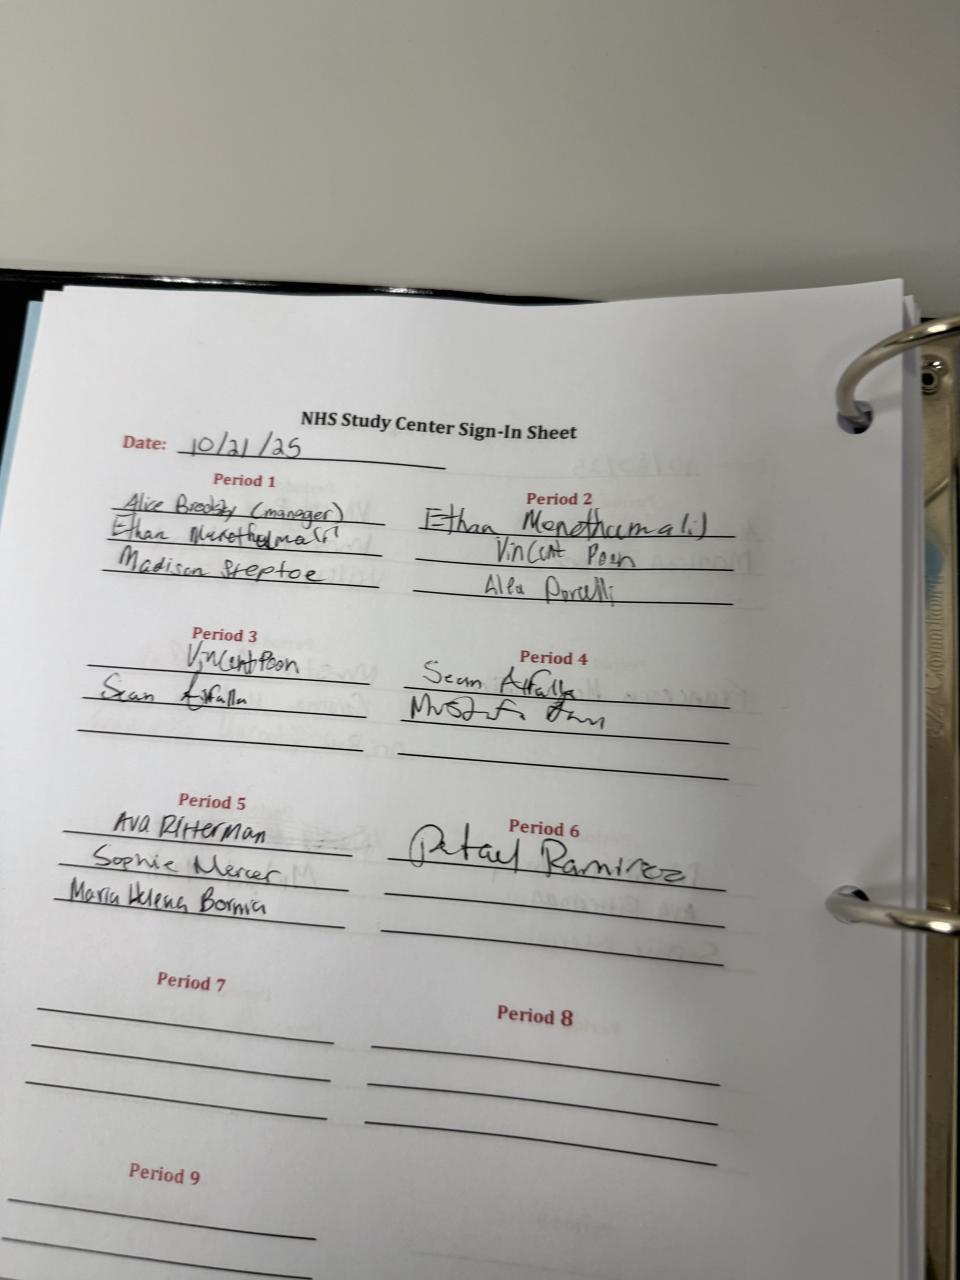 NHS Study Center Sign-In Sheet
Date: 10/21/25
Period 1
Alice (manager)
Ethan
Madison Steptoe
Period 2
Ethan
Vincent Poon
Porcelli
Period 3
Vincent Poon
Sean
Period 4
Sean
Period 5
Ava Ritterman
Sophie Mercer
Maria Helena Bornia
Period 6
Ramirez
Period 7
Period 8
Period 9